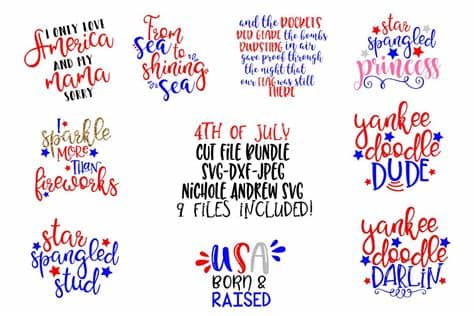 I ONLY LOVE
America
AND MY
mama
SORRY
From
sea
to
shining
sea
and the ROCKETS
RED GLARE the bombs
BURSTING in air
gave proof through
the night that
our FLAG was still
THERE
star
spangled
princess
I
sparkle
MORE
THAN
fireworks
4TH OF JULY
CUT FILE BUNDLE
SVG-DXF-JPEG
NICHOLE ANDREW SVG
9 FILES INCLUDED!
yankee
doodle
DUDE
star
spangled
stud
USA
BORN &
RAISED
yankee
doodle
DARLIN